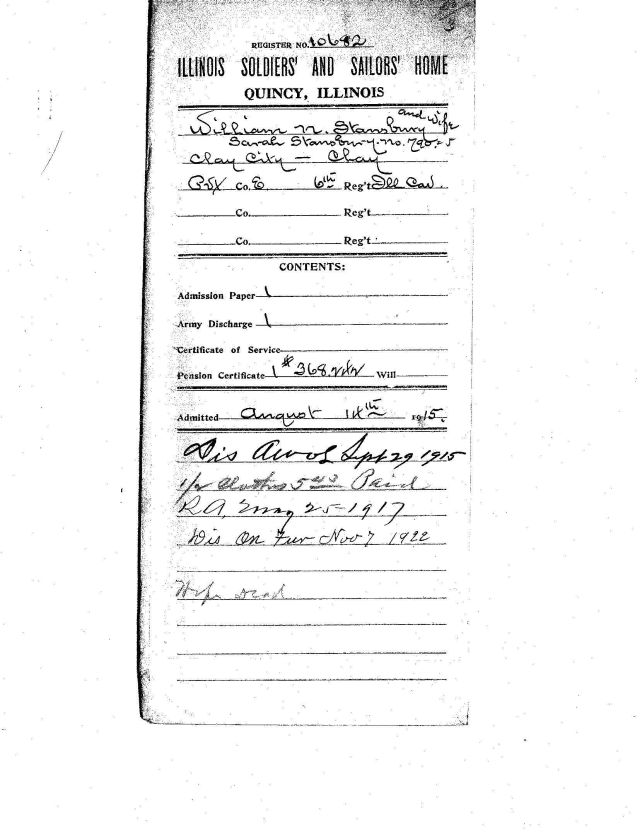 REGISTER NO. 10682
ILLINOIS SOLDIERS' AND SAILORS' HOME
QUINCY, ILLINOIS
and wife
William N. Stansbury
Sarah Stansbury. no.
Clay City — Clay
Pvt Co. E 6th Reg't Ill Cav.
Co. Reg't
Co. Reg't
CONTENTS:
Admission Paper 1
Army Discharge 1
Certificate of Service
Pension Certificate 1 $368. Will
Admitted August 14th 1915.
Dis Awol Sept 29 1915
Clothes 5 43 Paid
RA, May 25-1917
Dis On Fur Nov 7 1922
Wife Dead